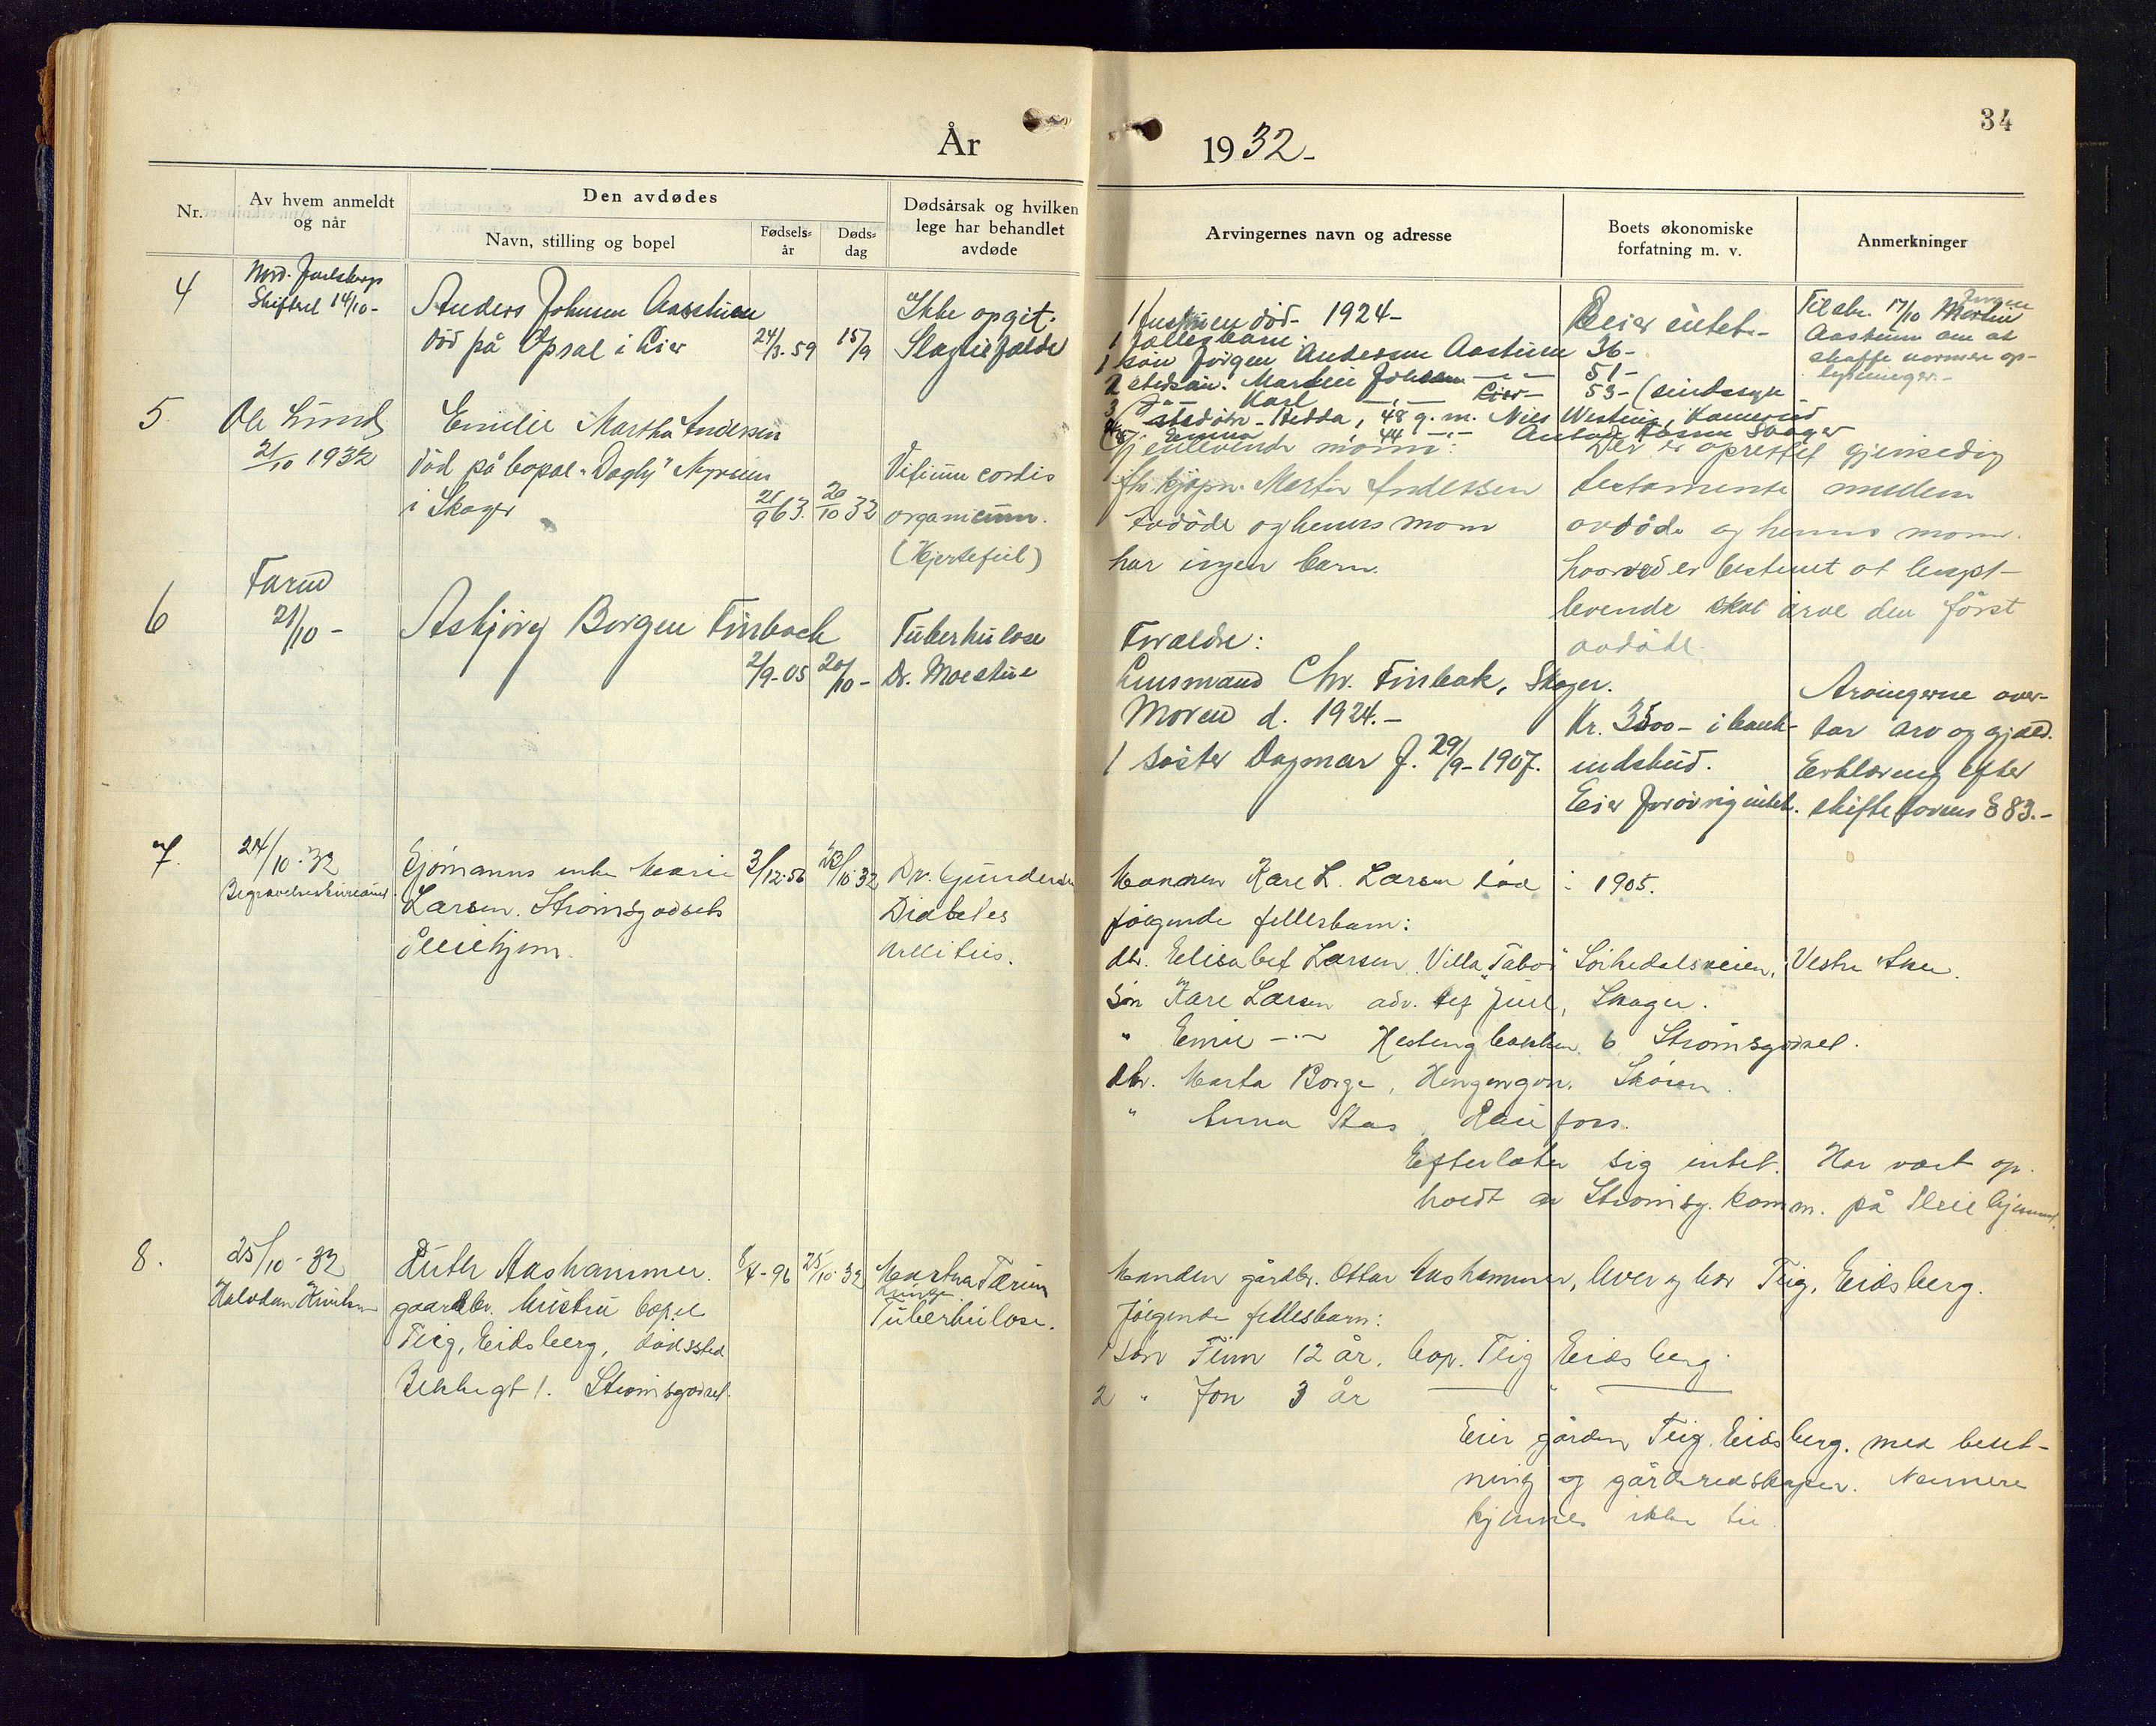 34
År 1932-
Nr.
Av hvem anmeldt
og når
Den avdødes
Navn, stilling og bopel
Fødsels-
år
Døds-
dag
Dødsårsak og hvilken
lege har behandlet
avdøde
Arvingernes navn og adresse
Boets økonomiske
forfatning m. v.
Anmerkninger
4
Nord. Jarlsberg
Skifteret 14/10-
Anders Johnsen Aasstuen
död på Opsal i Lier
24/3-59
15/9
Ikke opgit.
Slagtilfælde
Hustruen död 1924-
fællesbarn:
1 sön Jörgen Andersen Aastuen 36-
2 stedsön: Martin Johnsen 51-
3 Karl Lier 53- (sindssyk
stedötr. Hedda, 48 g. m. Nils Westeng,
Emma 44
Eier intet-
Tilskr. 17/10 Martin
Aastuen om at
skaffe nærmere op-
lysninger.-
5
Ole Lund
21/10 1932
Emilie Martha Andersen
död på bopæl "Dagly" Myrene
i Skoger
21/9 63
20/10 32
Vitium cordis
organicum.
(Hjertefeil)
Gjenlevende mann:
fhv. kjöpm. Martin Andersen
Avdöde og hennes mann
har ingen barn.
Der er oprettet gjensedig
testamente mellem
avdöde og hennes mann.
hvorved er bestemt at lengst-
levende skal arve den först
avdöde.
6
Farum
21/10-
Asbjörg Borgen Finbach
2/9-05
20/10-
Tuberkulose
Dr. Moestue
Forældre:
Husmand Chr. Finbak, Skoger.
Moren d. 1924.-
1 söster Dagmar f. 29/9-1907.
Kr. 3500- i bank-
indskud.
Eier forövrig intet.
Arvingerne over-
tar arv og gjæld.
Erklæring efter
skiftelovens § 83.-
7.
24/10-32
Begravelsesbureauet
Sjömanns enke Marie
Larsen. Strömsgodsets
Pleiehjem.
3/12-56
23/10-32
Dr. Gundersen
Diabetes
Mellitus.
Mannen Karl L. Larsen död i 1905.
fölgende fellesbarn:
dtr. Elisabet Larsen. Villa "Tabor" Sörkedalsveien, Vestre Aker.
Sön Karl Larsen adr. Juel, Skoger.
" Emil -"- Hestengbakken 6 Strömsgodset.
dtr. Marta Borge, Skoien.
" Anna Aas Raufoss.
Efterlater sig intet. Har vært op-
holdt av Strömsg. komm. på Pleiehjemmet.
8.
25/10-32
Halvdan
Ruth Aashammer.
gaardbr. hustru bopel
Teig, Eidsberg, dödssted
Bekkegt 1. Strömsgodset.
8/4-96
25/10-32
Martna Tærum
Lunge
Tuberkulose.
Manden gårdbr. Ottar Aashammer, lever og bor Teig, Eidsberg.
Fölgende fellesbarn:
1 Sön Finn 12 år, bop. Teig Eidsberg
2 " Jon 3 år "
Eier gården Teig, Eidsberg. med beset-
ning og gårdsredskaper. Nærmere
kjennes ikke til